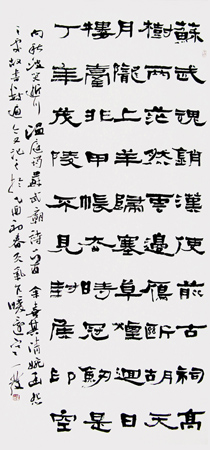 蘇武魂銷漢使前古祠高
樹兩茫然雲邊鴈斷胡天
月隴上羊歸塞草煙迴日
樓臺非甲帳去時冠劍是
丁年茂陵不見封侯印空
向秋波哭逝川 温庭筠蘇武廟詩一首 余喜其清婉